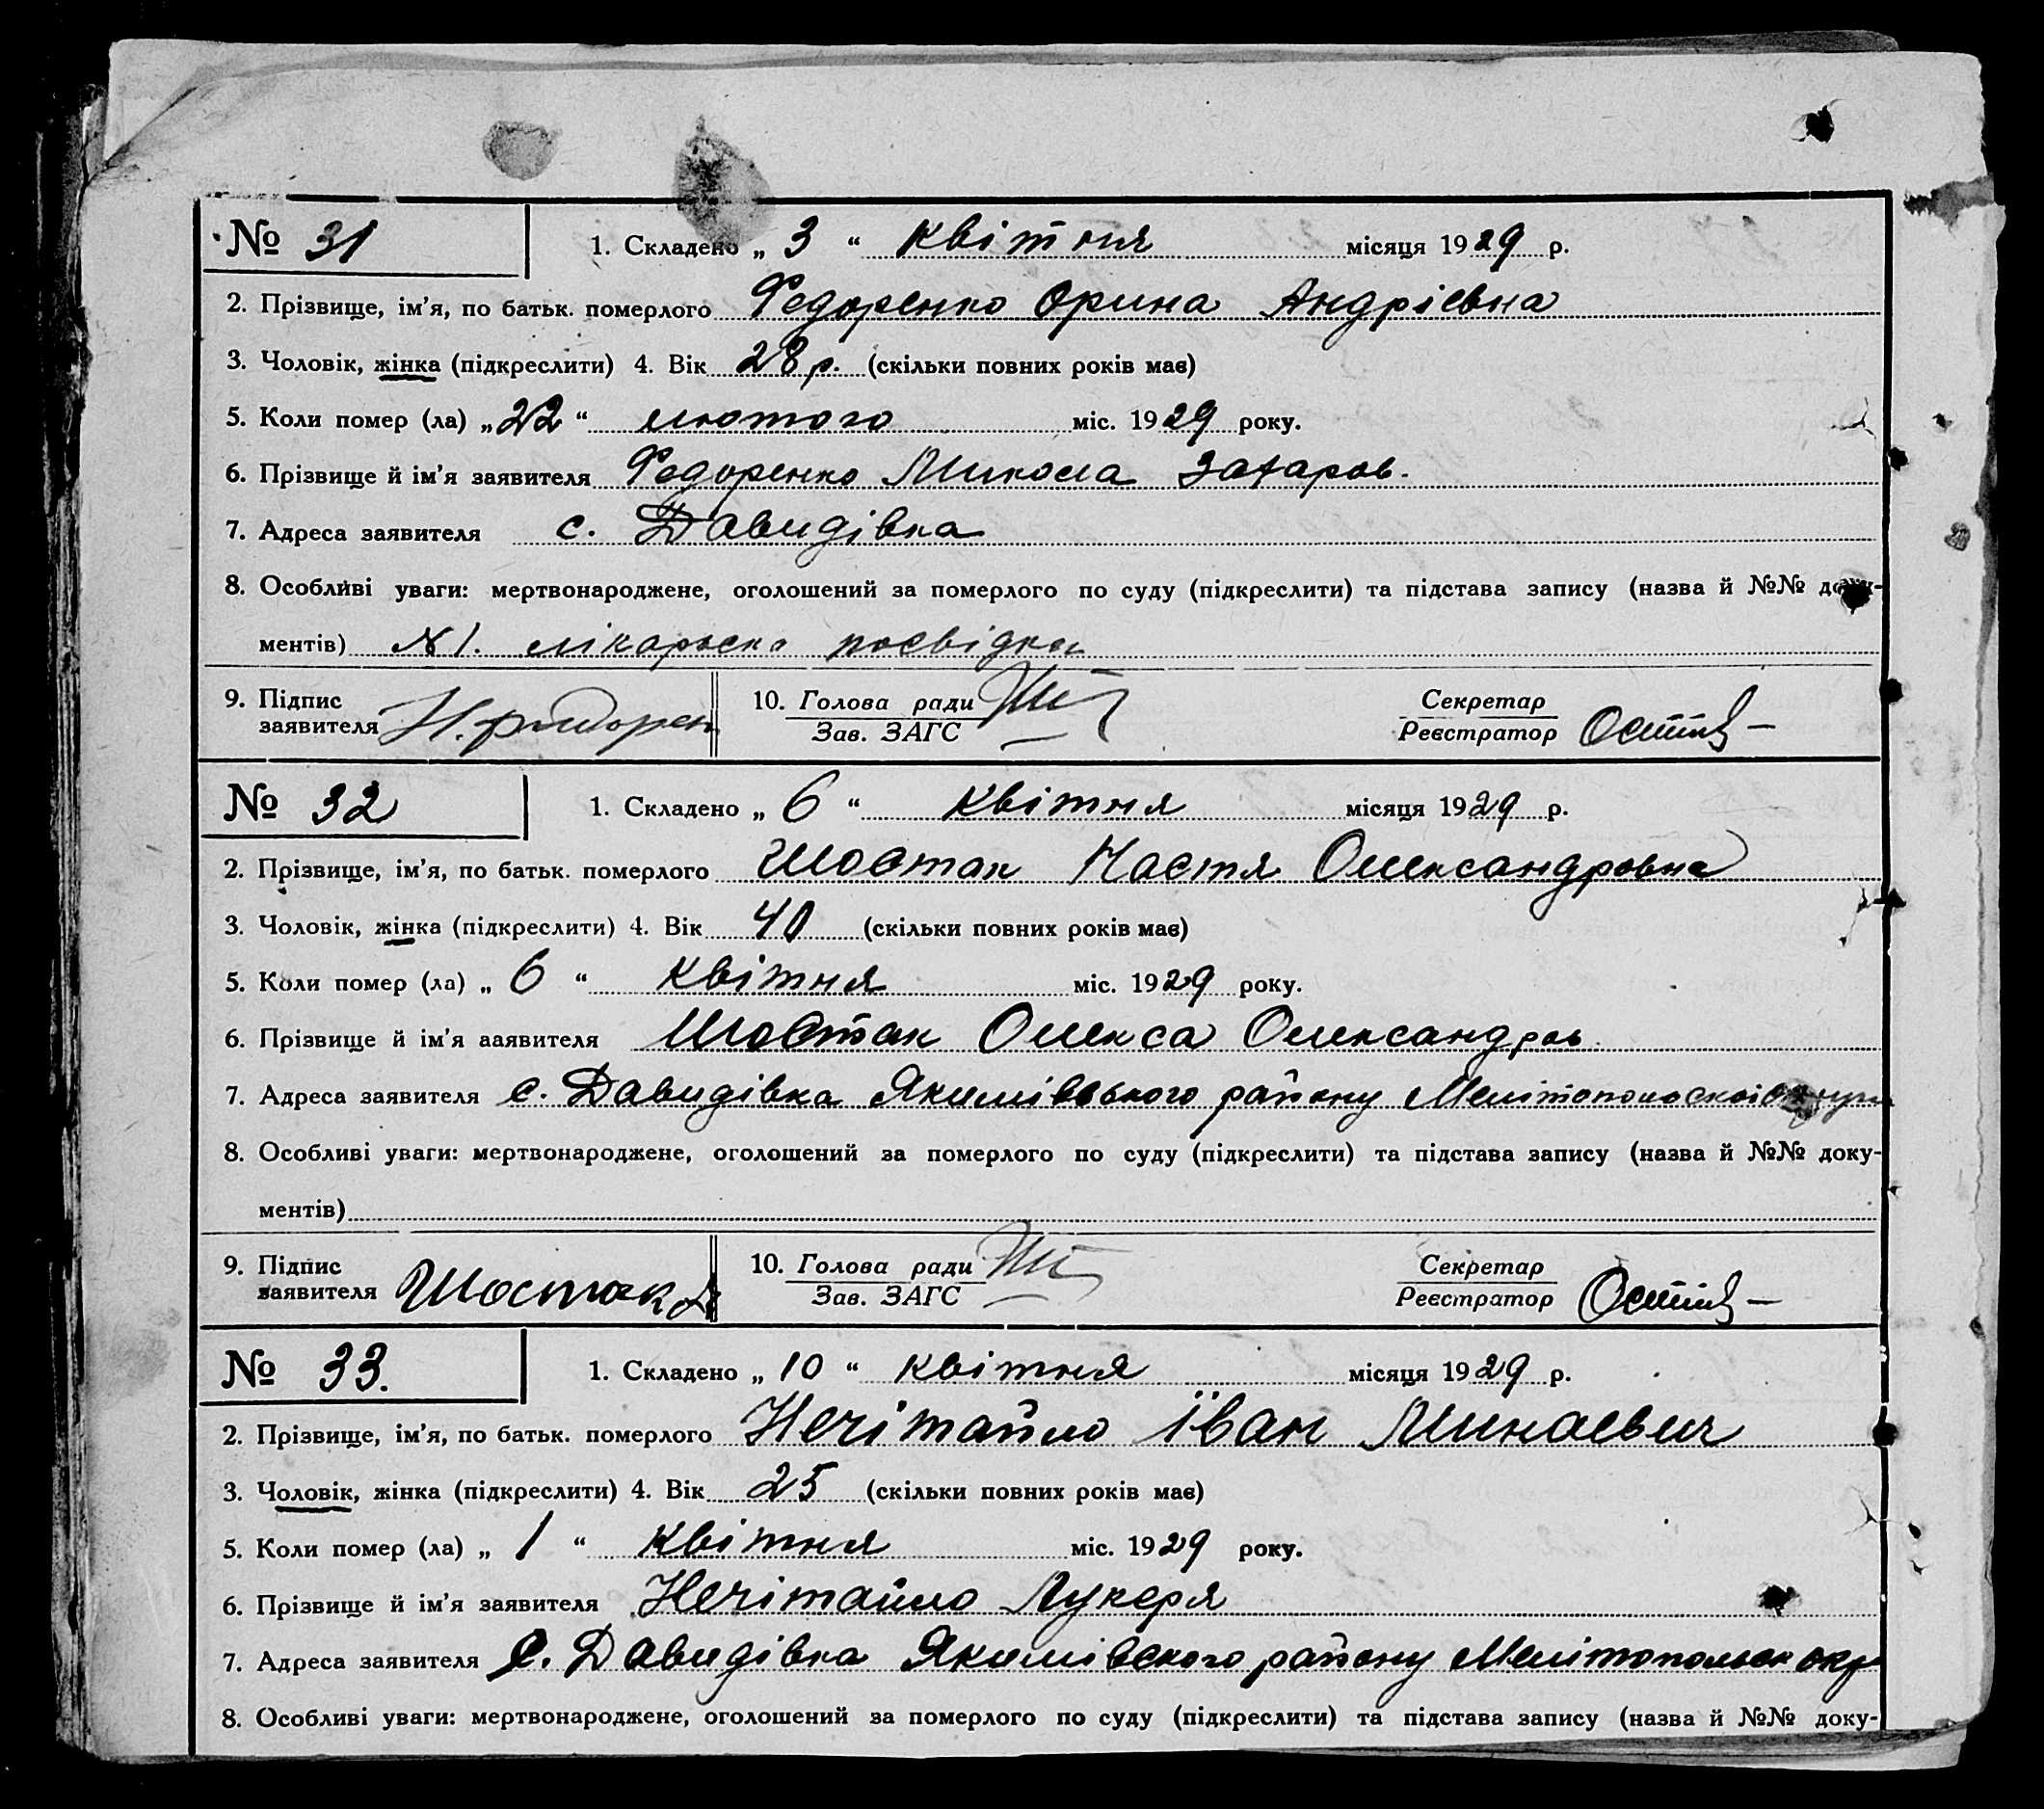 № 31 1. Складено „ 3 “ квітня місяця 1929 р.
2. Прізвище, ім’я, по батьк. померлого Федоренко Орина Андрієвна
3. Чоловік, жінка (підкреслити) 4. Вік 28 р. (скільки повних років має)
5. Коли помер (ла) „ 22 “ лютого міс. 1929 року.
6. Прізвище й ім’я заявителя Федоренко Микола Захаров.
7. Адреса заявителя с. Давидівка
8. Особливі уваги: мертвонароджене, оголошений за померлого по суду (підкреслити) та підстава запису (назва й №№ доку-
ментів) №1. лікарська посвідка
9. Підпис заявителя 10. Голова ради Секретар
Зав. ЗАГС Реєстратор
№ 32 1. Складено „ 6 “ квітня місяця 1929 р.
2. Прізвище, ім’я, по батьк. померлого Шостак Настя Олександровна
3. Чоловік, жінка (підкреслити) 4. Вік 40 (скільки повних років має)
5. Коли помер (ла) „ 6 “ квітня міс. 1929 року.
6. Прізвище й ім’я ааявителя Шостак Олекса Олександров
7. Адреса заявителя с. Давидівка Якимівського району Мелітопольскої
8. Особливі уваги: мертвонароджене, оголошений за померлого по суду (підкреслити) та підстава запису (назва й №№ доку-
ментів)
9. Підпис заявителя Шостак 10. Голова ради Секретар
Зав. ЗАГС Реєстратор
№ 33. 1. Складено „ 10 “ квітня місяця 1929 р.
2. Прізвище, ім’я, по батьк. померлого Нечітайло Іван Минаевич
3. Чоловік, жінка (підкреслити) 4. Вік 25 (скільки повних років має)
5. Коли помер (ла) „ 1 “ квітня міс. 1929 року.
6. Прізвище й ім’я заявителя Нечітайло Лукеря
7. Адреса заявителя с. Давидівка Якимівского району Мелітопольск окр
8. Особливі уваги: мертвонароджене, оголошений за померлого по суду (підкреслити) та підстава запису (назва й №№ доку-